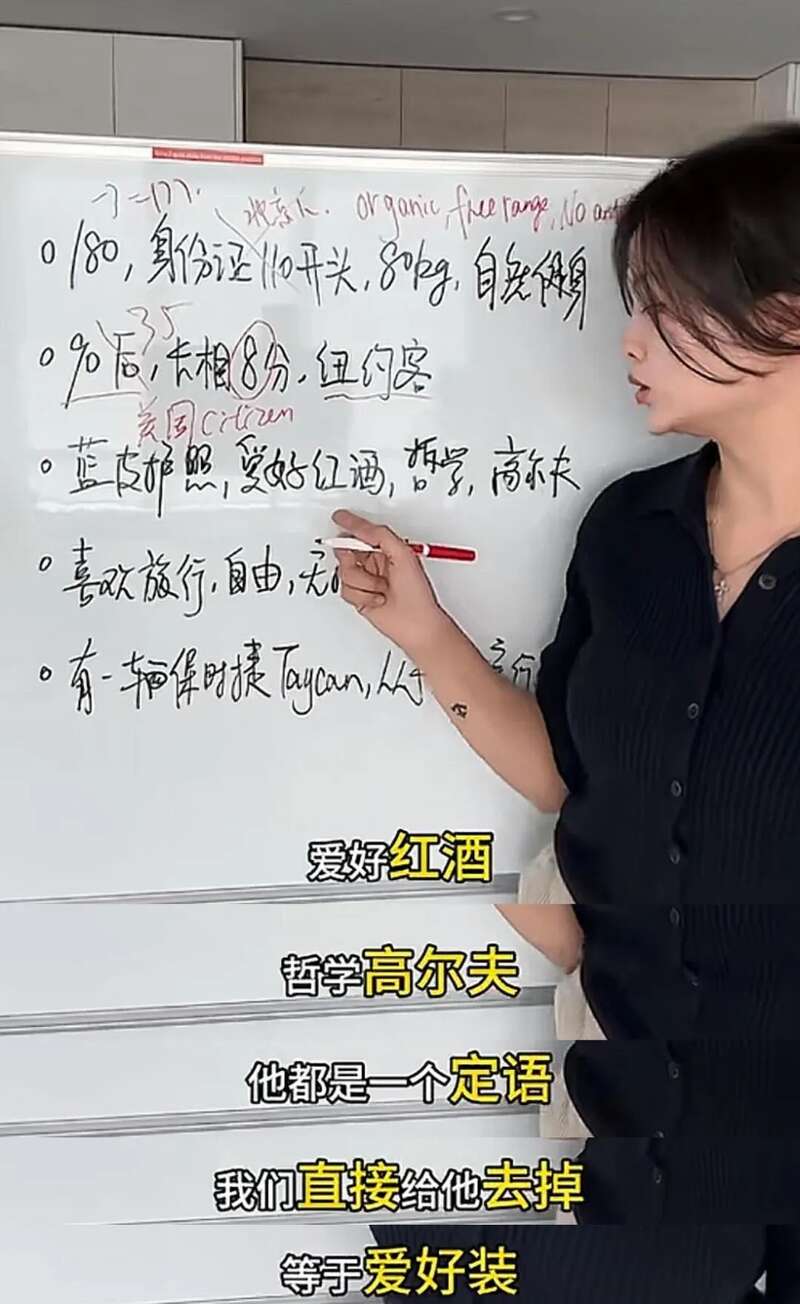 -3=177.
北京人. organic, free range, No ant
180, 身份证110开头, 80kg, 自然健身
35
90后, 长相8分, 纽约客
美国 citizen
蓝皮护照, 爱好红酒, 哲学, 高尔夫
喜欢旅行, 自由,
有一辆保时捷Taycan,
爱好红酒
哲学高尔夫
他都是一个定语
我们直接给他去掉
等于爱好装